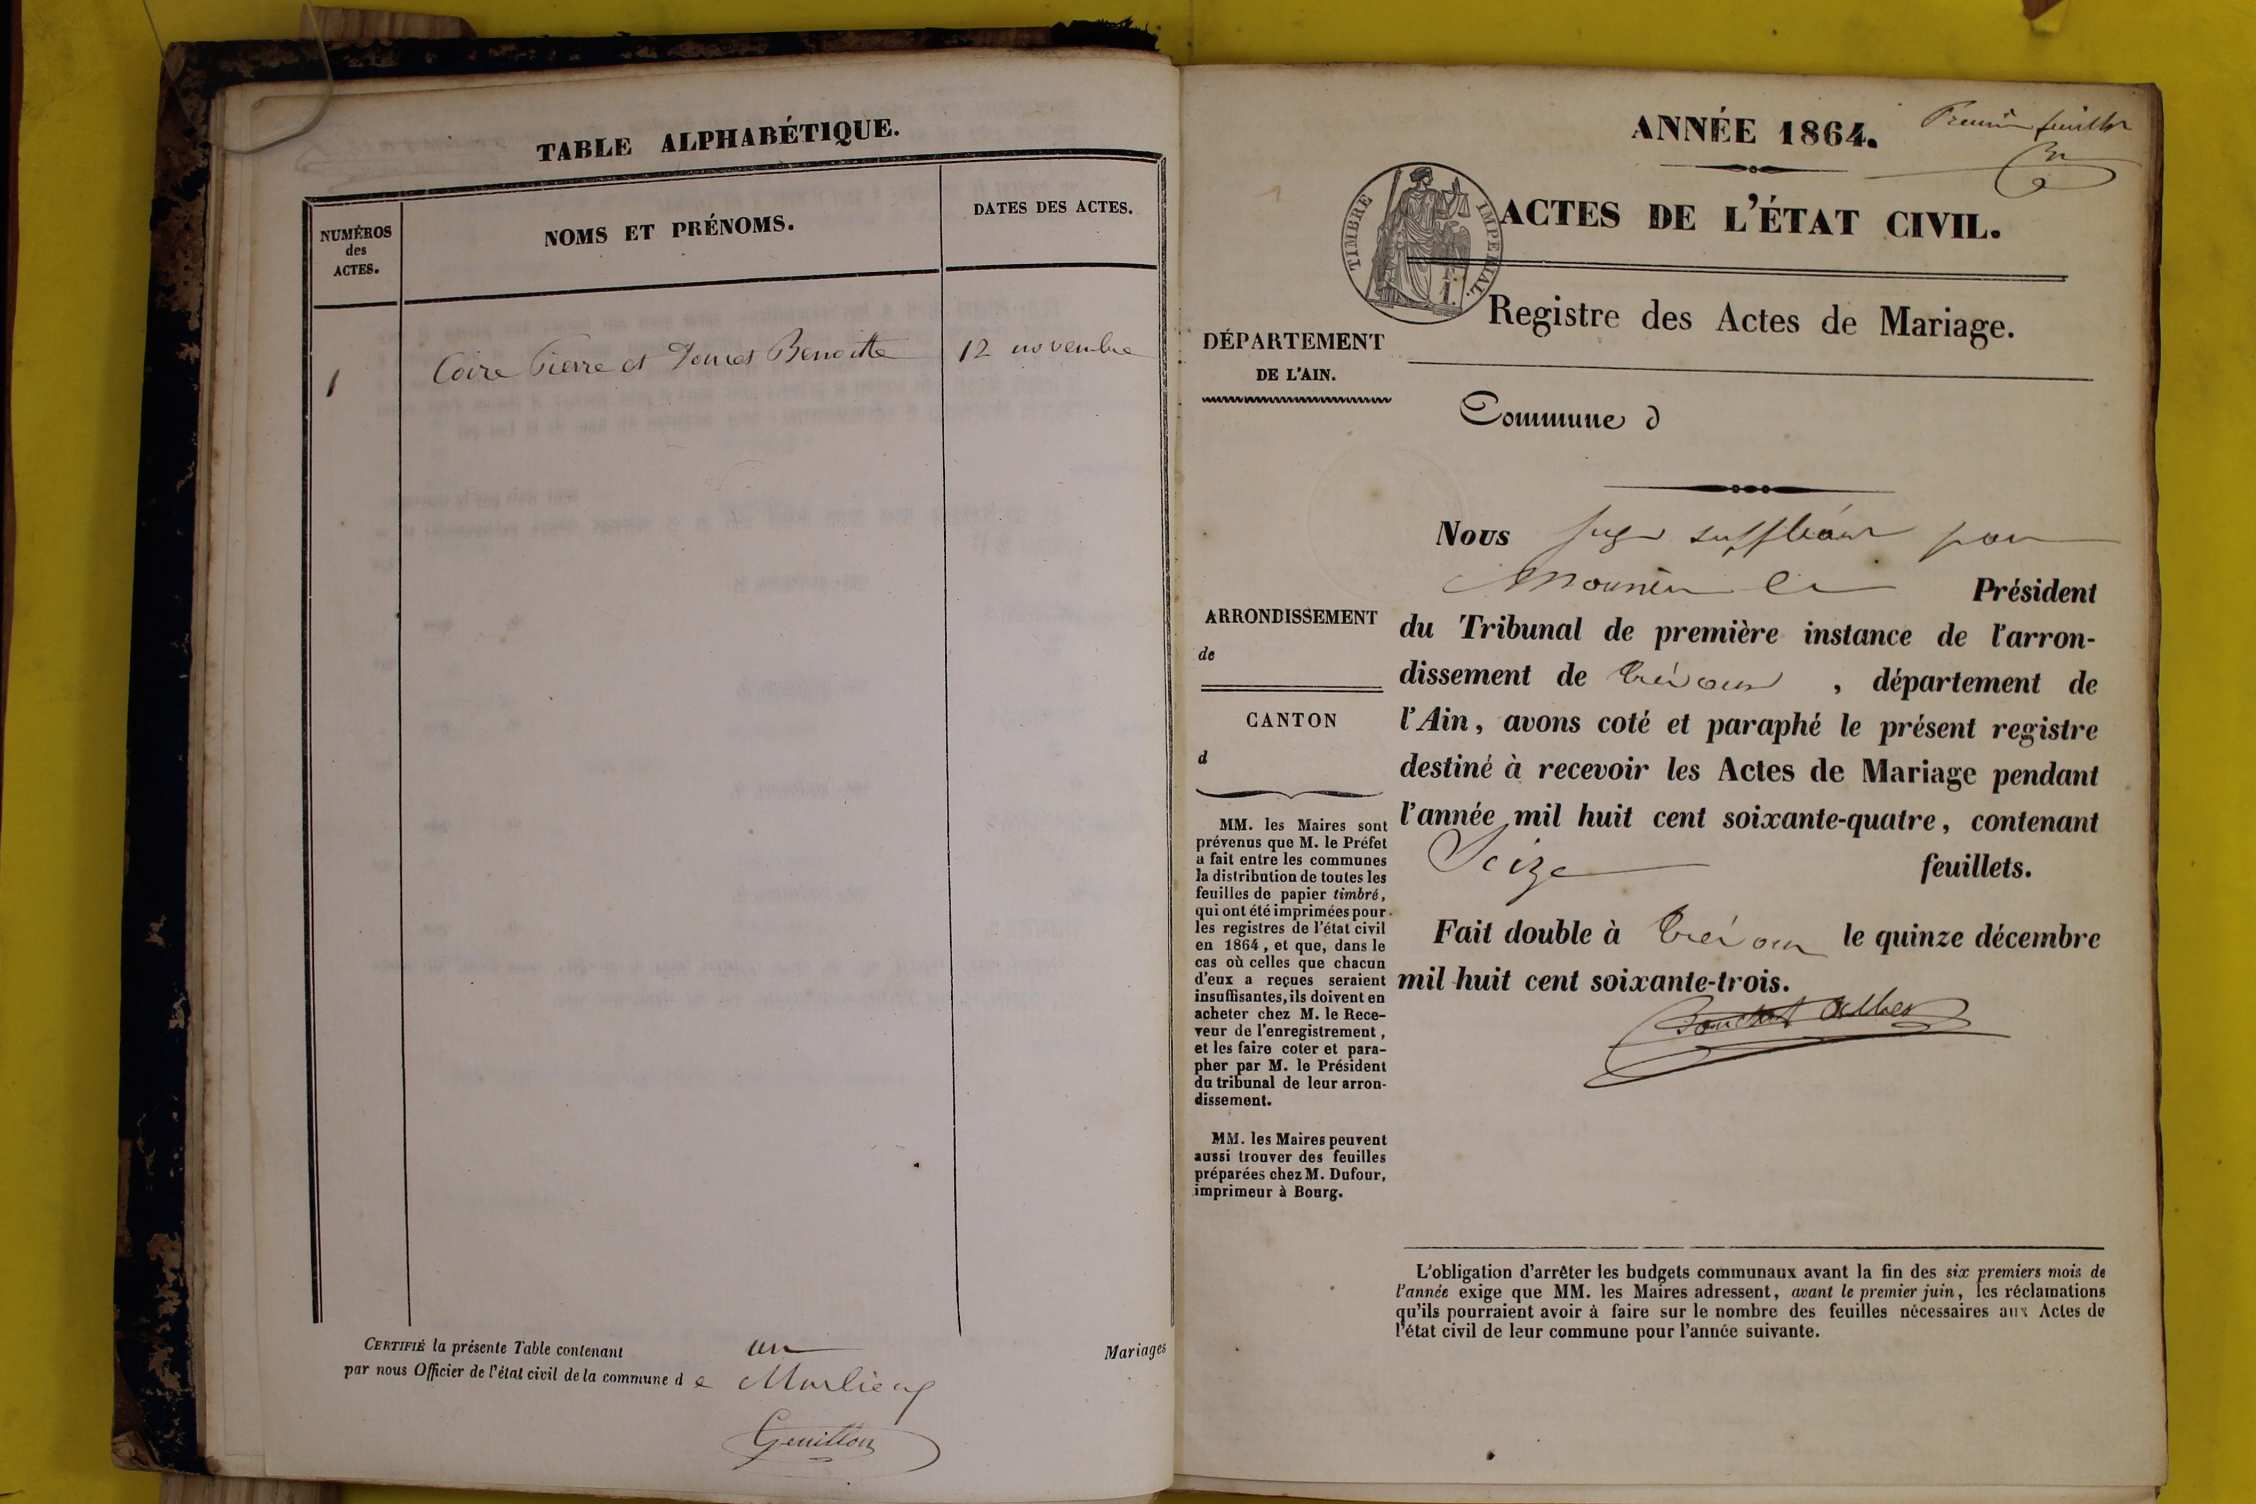 TABLE ALPHABÉTIQUE.
NUMÉROS
des
ACTES.
NOMS ET PRÉNOMS.
DATES DES ACTES.
1
Coire Pierre et Benoitte
12 novembre
CERTIFIÉ la présente Table contenant un Mariages
par nous Officier de l'état civil de la commune d e Marlieux
ANNÉE 1864.
Premier feuillet
TIMBRE IMPERIAL.
ACTES DE L'ÉTAT CIVIL.
Registre des Actes de Mariage.
DÉPARTEMENT
DE L'AIN.
Commune d
ARRONDISSEMENT
de
CANTON
d
MM. les Maires sont
prévenus que M. le Préfet
a fait entre les communes
la distribution de toutes les
feuilles de papier timbré,
qui ont été imprimées pour
les registres de l'état civil
en 1864, et que, dans le
cas où celles que chacun
d'eux a reçues seraient
insuffisantes, ils doivent en
acheter chez M. le Rece-
veur de l'enregistrement,
et les faire coter et para-
pher par M. le Président
du tribunal de leur arron-
dissement.
MM. les Maires peuvent
aussi trouver des feuilles
préparées chez M. Dufour,
imprimeur à Bourg.
Nous Juge suppléant pour
Monsieur le Président
du Tribunal de première instance de l'arron-
dissement de Trévoux, département de
l'Ain, avons coté et paraphé le présent registre
destiné à recevoir les Actes de Mariage pendant
l'année mil huit cent soixante-quatre, contenant
Seize feuillets.
Fait double à Trévoux le quinze décembre
mil huit cent soixante-trois.
L'obligation d'arrêter les budgets communaux avant la fin des six premiers mois de
l'année exige que MM. les Maires adressent, avant le premier juin, les réclamations
qu'ils pourraient avoir à faire sur le nombre des feuilles nécessaires aux Actes de
l'état civil de leur commune pour l'année suivante.